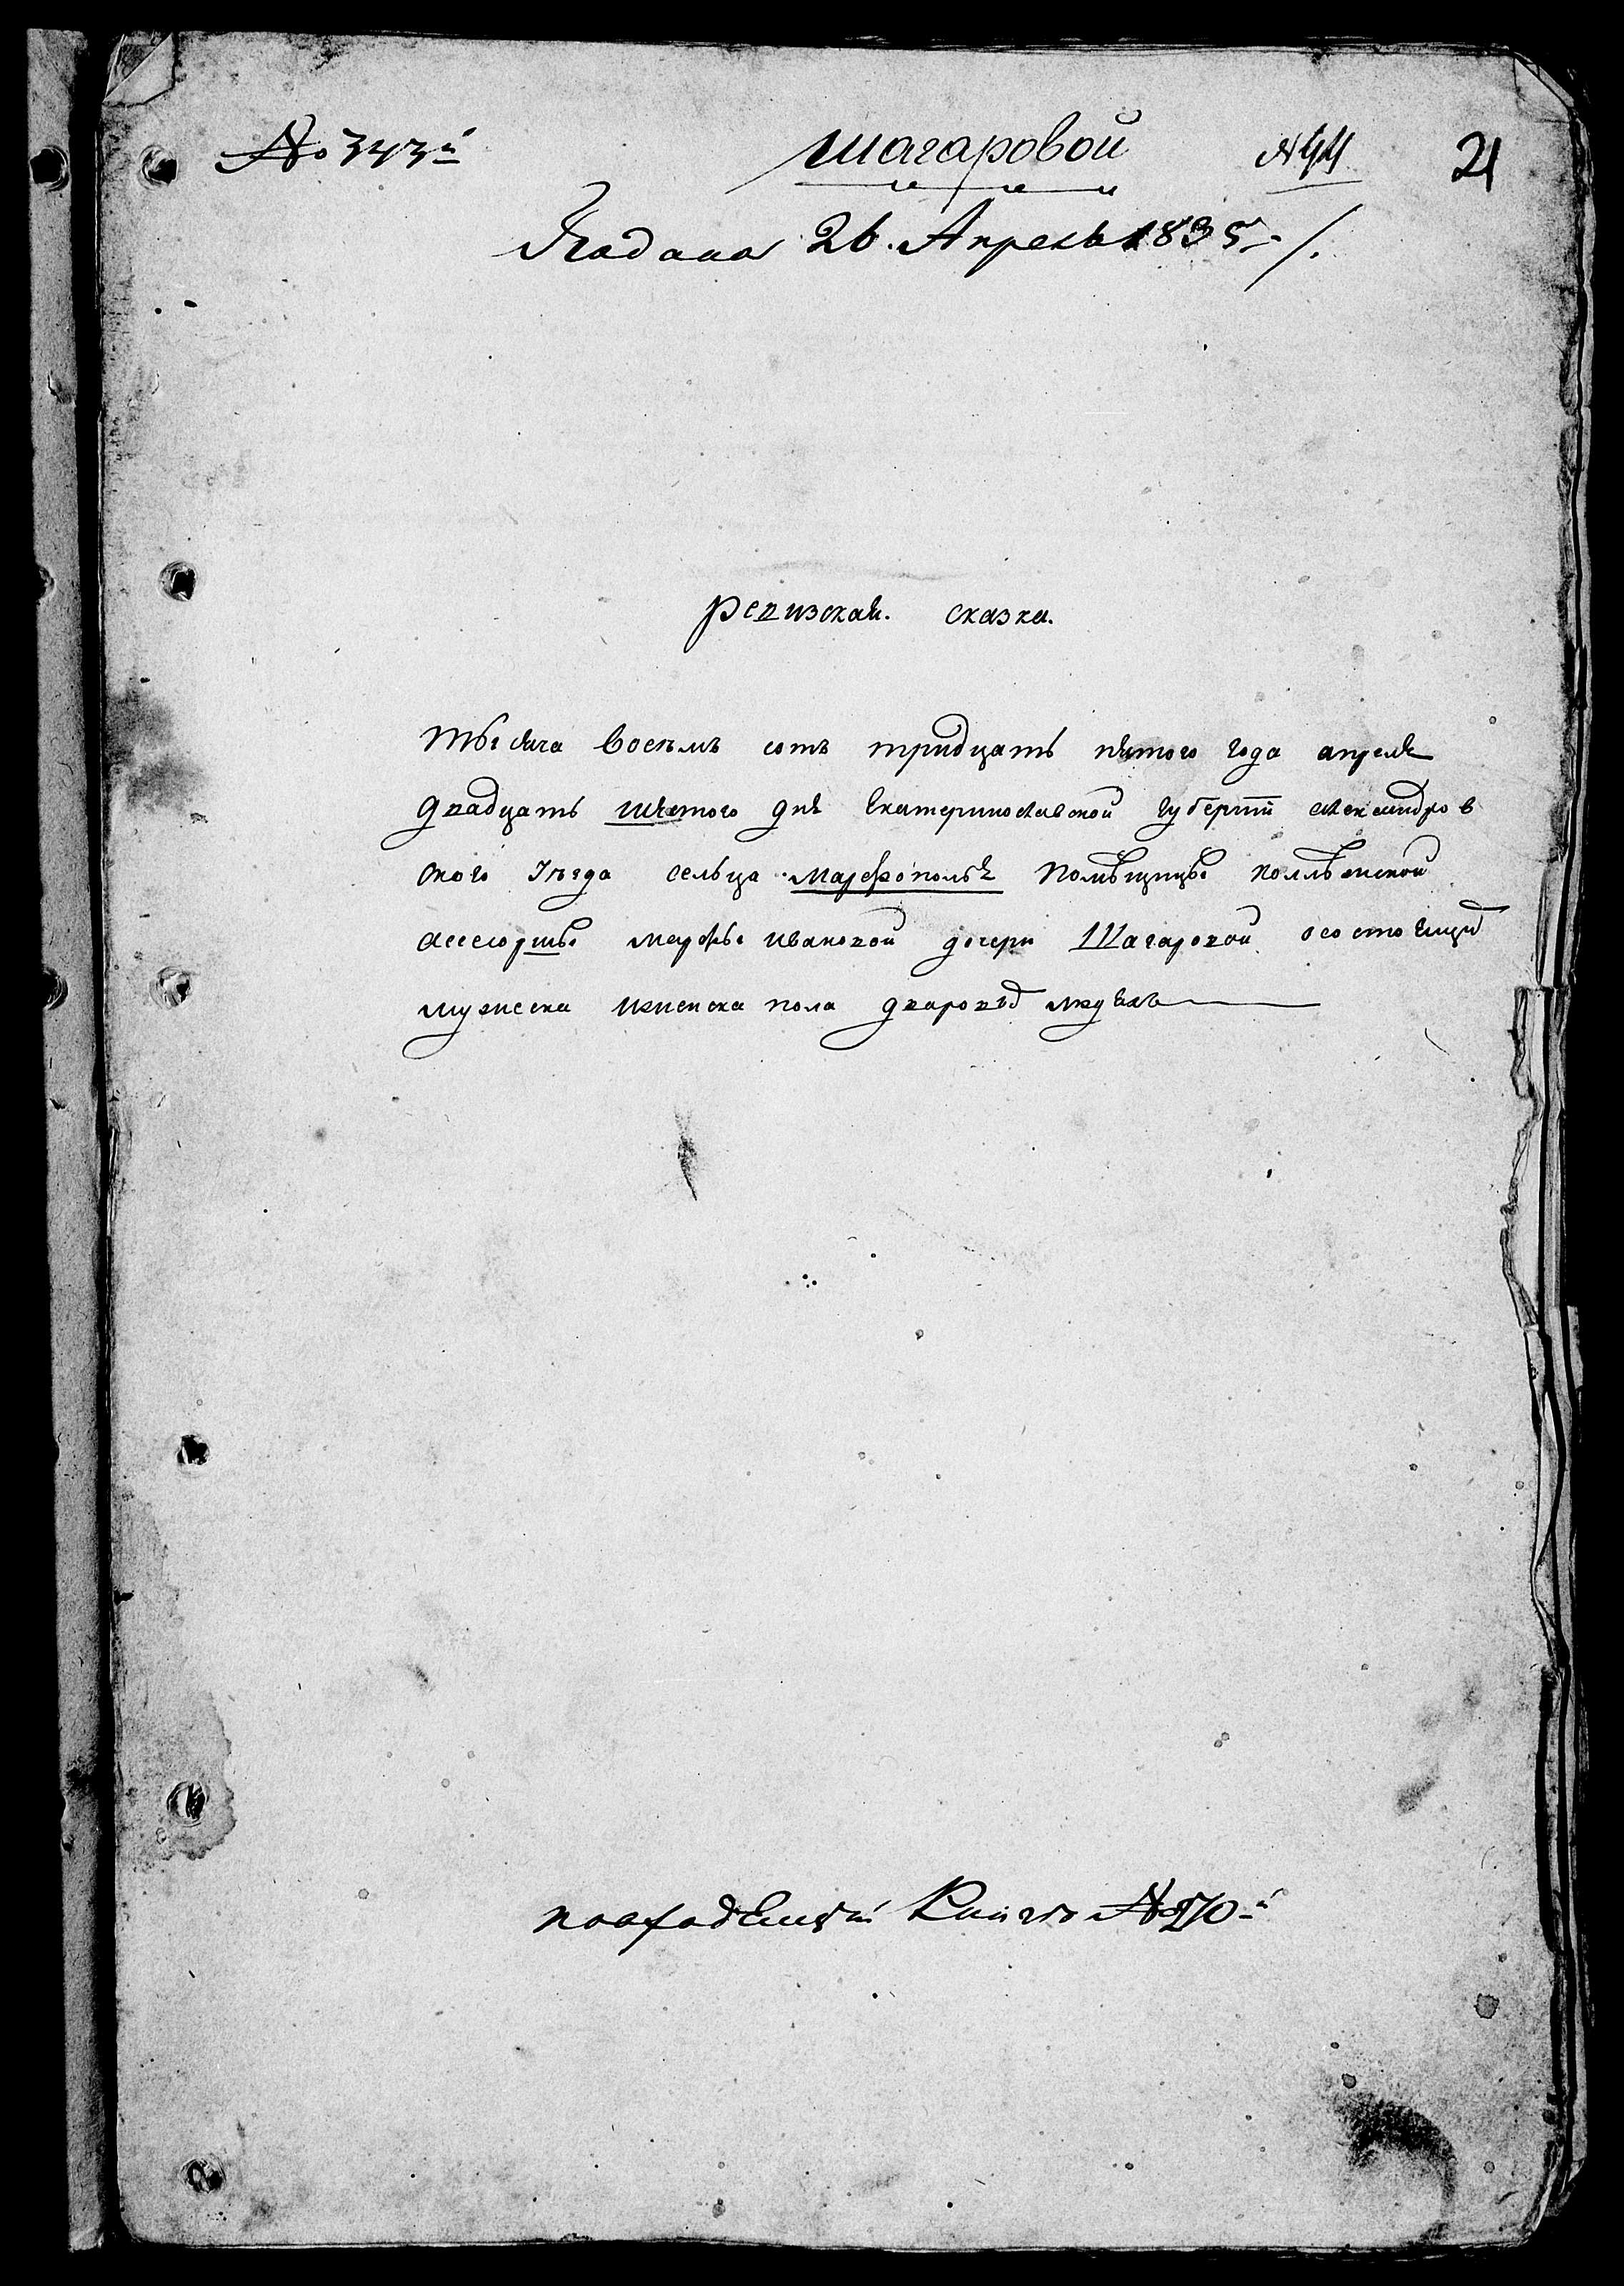 № 343й шагаровой №44 21
Подана 26. Апреля 1835./.
ревизская. сказка.
тысяча восемь сотъ тридцать пятого года апреля
двадцать шестого дня Екатеринославской губернїи александров
ского уезда сельца марфополья помѣщицы коллежской
асесоршы марфы ивановой дочери Шагаровой осостоящихъ
мужеска иженска пола дворовыхъ людяхъ
повходящей Книге №270й